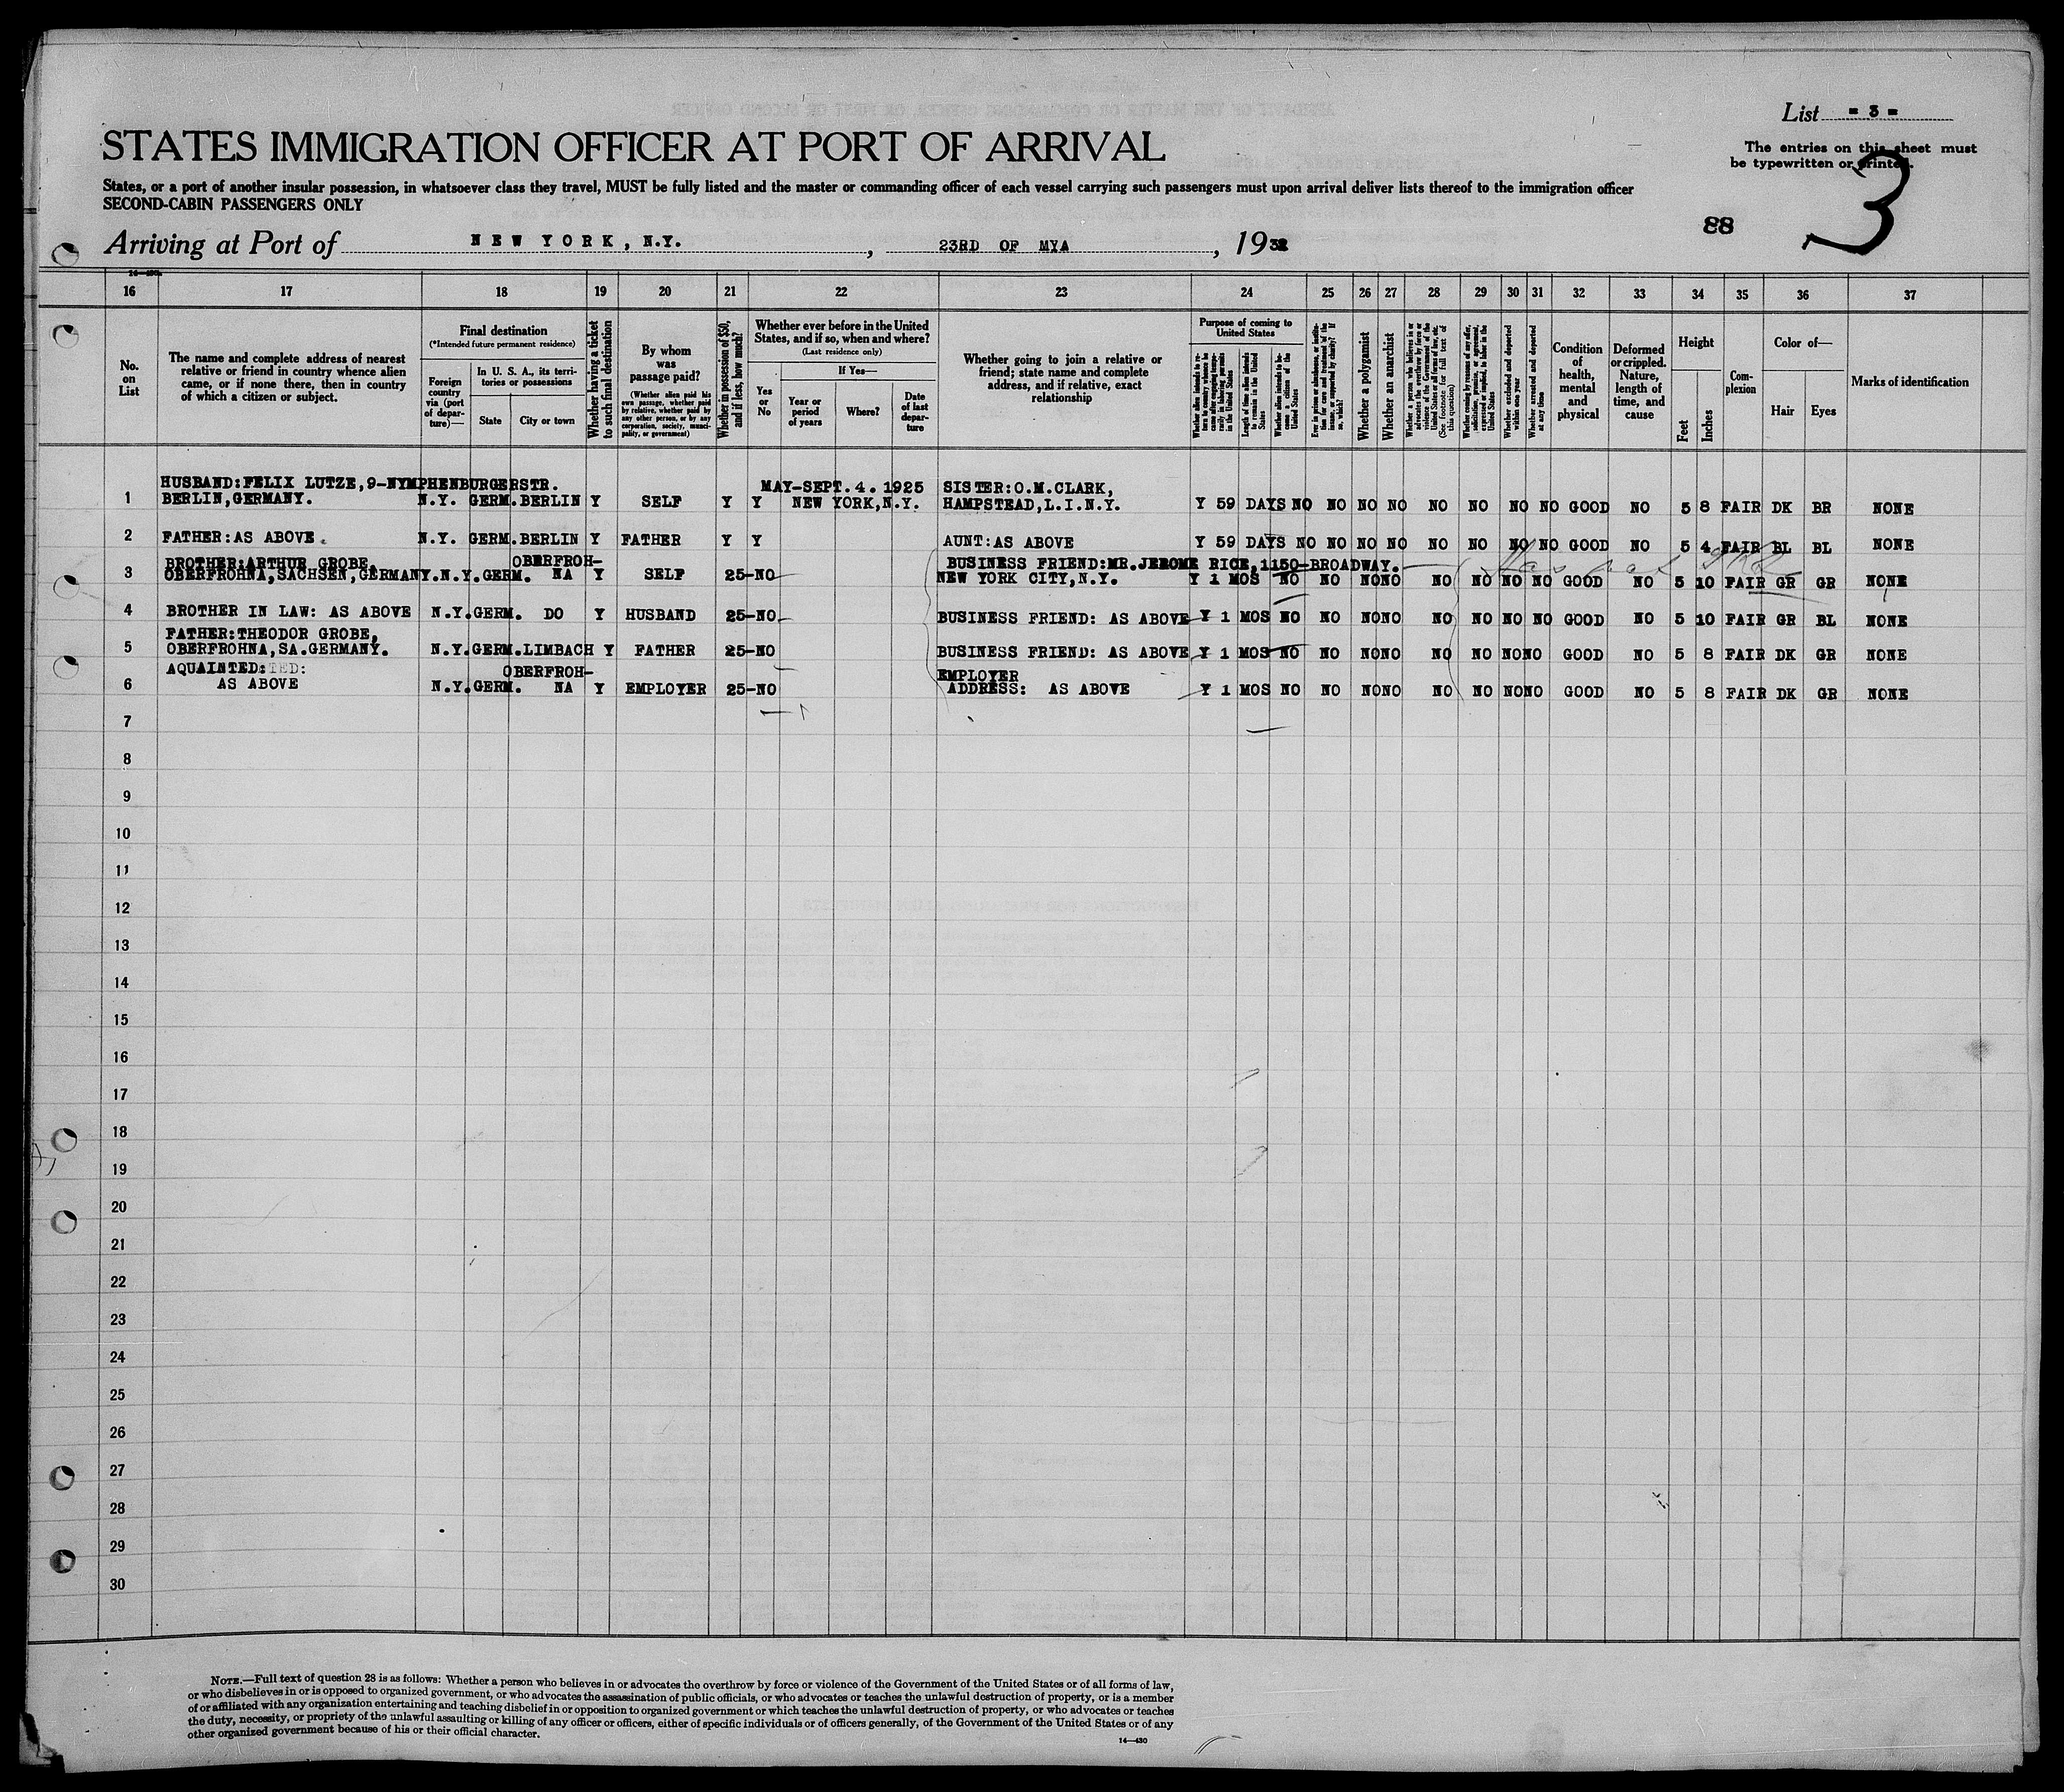 List = 3 =
STATES IMMIGRATION OFFICER AT PORT OF ARRIVAL
The entries on this sheet must
be typewritten or printed.
3
States, or a port of another insular possession, in whatsoever class they travel, MUST be fully listed and the master or commanding officer of each vessel carrying such passengers must upon arrival deliver lists thereof to the immigration officer
SECOND-CABIN PASSENGERS ONLY
88
Arriving at Port of NEW YORK, N.Y. , 23RD OF MYA , 1932
16 17 18 19 20 21 22 23 24 25 26 27 28 29 30 31 32 33 34 35 36 37
No. on List
The name and complete address of nearest relative or friend in country whence alien came, or if none there, then in country of which a citizen or subject.
Final destination
(*Intended future permanent residence)
Foreign country via (port of departure)—
In U. S. A., its territories or possessions
State
City or town
Whether having a ticket to such final destination
By whom was passage paid?
(Whether alien paid his own passage, whether paid by relative, whether paid by any other person, or by any corporation, society, municipality, or government)
Whether in possession of $50, and if less, how much?
Whether ever before in the United States, and if so, when and where?
(Last residence only)
Yes or No
If Yes—
Year or period of years
Where?
Date of last departure
Whether going to join a relative or friend; state name and complete address, and if relative, exact relationship
Purpose of coming to United States
Length of time alien intends to remain in the United States
Whether alien intends to become a citizen of the United States
Whether a polygamist
Whether an anarchist
(See footnote for full text of this question)
Whether excluded and deported within one year
Whether arrested and deported at any time
Condition of health, mental and physical
Deformed or crippled. Nature, length of time, and cause
Height
Feet
Inches
Complexion
Color of—
Hair
Eyes
Marks of identification
HUSBAND:FELIX LUTZE,9-NYMPHENBURGERSTR. MAY-SEPT.4.1925 SISTER:O.M.CLARK,
1 BERLIN,GERMANY. N.Y. GERM.BERLIN Y SELF Y Y NEW YORK,N.Y. HAMPSTEAD,L.I.N.Y. Y 59 DAYS NO NO NO NO NO NO NO NO GOOD NO 5 8 FAIR DK BR NONE
2 FATHER:AS ABOVE. N.Y. GERM.BERLIN Y FATHER Y Y AUNT:AS ABOVE Y 59 DAYS NO NO NO NO NO NO NO NO GOOD NO 5 4 FAIR BL BL NONE
BROTHER:ARTHUR GROBE, OBERFROH- BUSINESS FRIEND:MR.JEROME RICE,1150-BROADWAY.
3 OBERFROHNA,SACHSEN,GERMANY.N.Y.GERM. NA Y SELF 25-NO NEW YORK CITY,N.Y. Y 1 MOS NO NO NONO NO NO NO NO GOOD NO 5 10 FAIR GR GR NONE
4 BROTHER IN LAW: AS ABOVE N.Y.GERM. DO Y HUSBAND 25-NO BUSINESS FRIEND: AS ABOVE Y 1 MOS NO NO NONO NO NO NO NO GOOD NO 5 10 FAIR GR BL NONE
FATHER:THEODOR GROBE,
5 OBERFROHNA,SA.GERMANY. N.Y.GERM.LIMBACH Y FATHER 25-NO BUSINESS FRIEND: AS ABOVE Y 1 MOS NO NO NONO NO NO NONO GOOD NO 5 8 FAIR DK GR NONE
AQUAINTED: OBERFROH- EMPLOYER
6 AS ABOVE N.Y.GERM. NA Y EMPLOYER 25-NO ADDRESS: AS ABOVE Y 1 MOS NO NO NONO NO NO NONO GOOD NO 5 8 FAIR DK GR NONE
7
8
9
10
11
12
13
14
15
16
17
18
19
20
21
22
23
24
25
26
27
28
29
30
NOTE.—Full text of question 28 is as follows: Whether a person who believes in or advocates the overthrow by force or violence of the Government of the United States or of all forms of law,
or who disbelieves in or is opposed to organized government, or who advocates the assassination of public officials, or who advocates or teaches the unlawful destruction of property, or is a member
of or affiliated with any organization entertaining and teaching disbelief in or opposition to organized government or which teaches the unlawful destruction of property, or who advocates or teaches
the duty, necessity, or propriety of the unlawful assaulting or killing of any officer or officers, either of specific individuals or of officers generally, of the Government of the United States or of any
other organized government because of his or their official character.
14—430